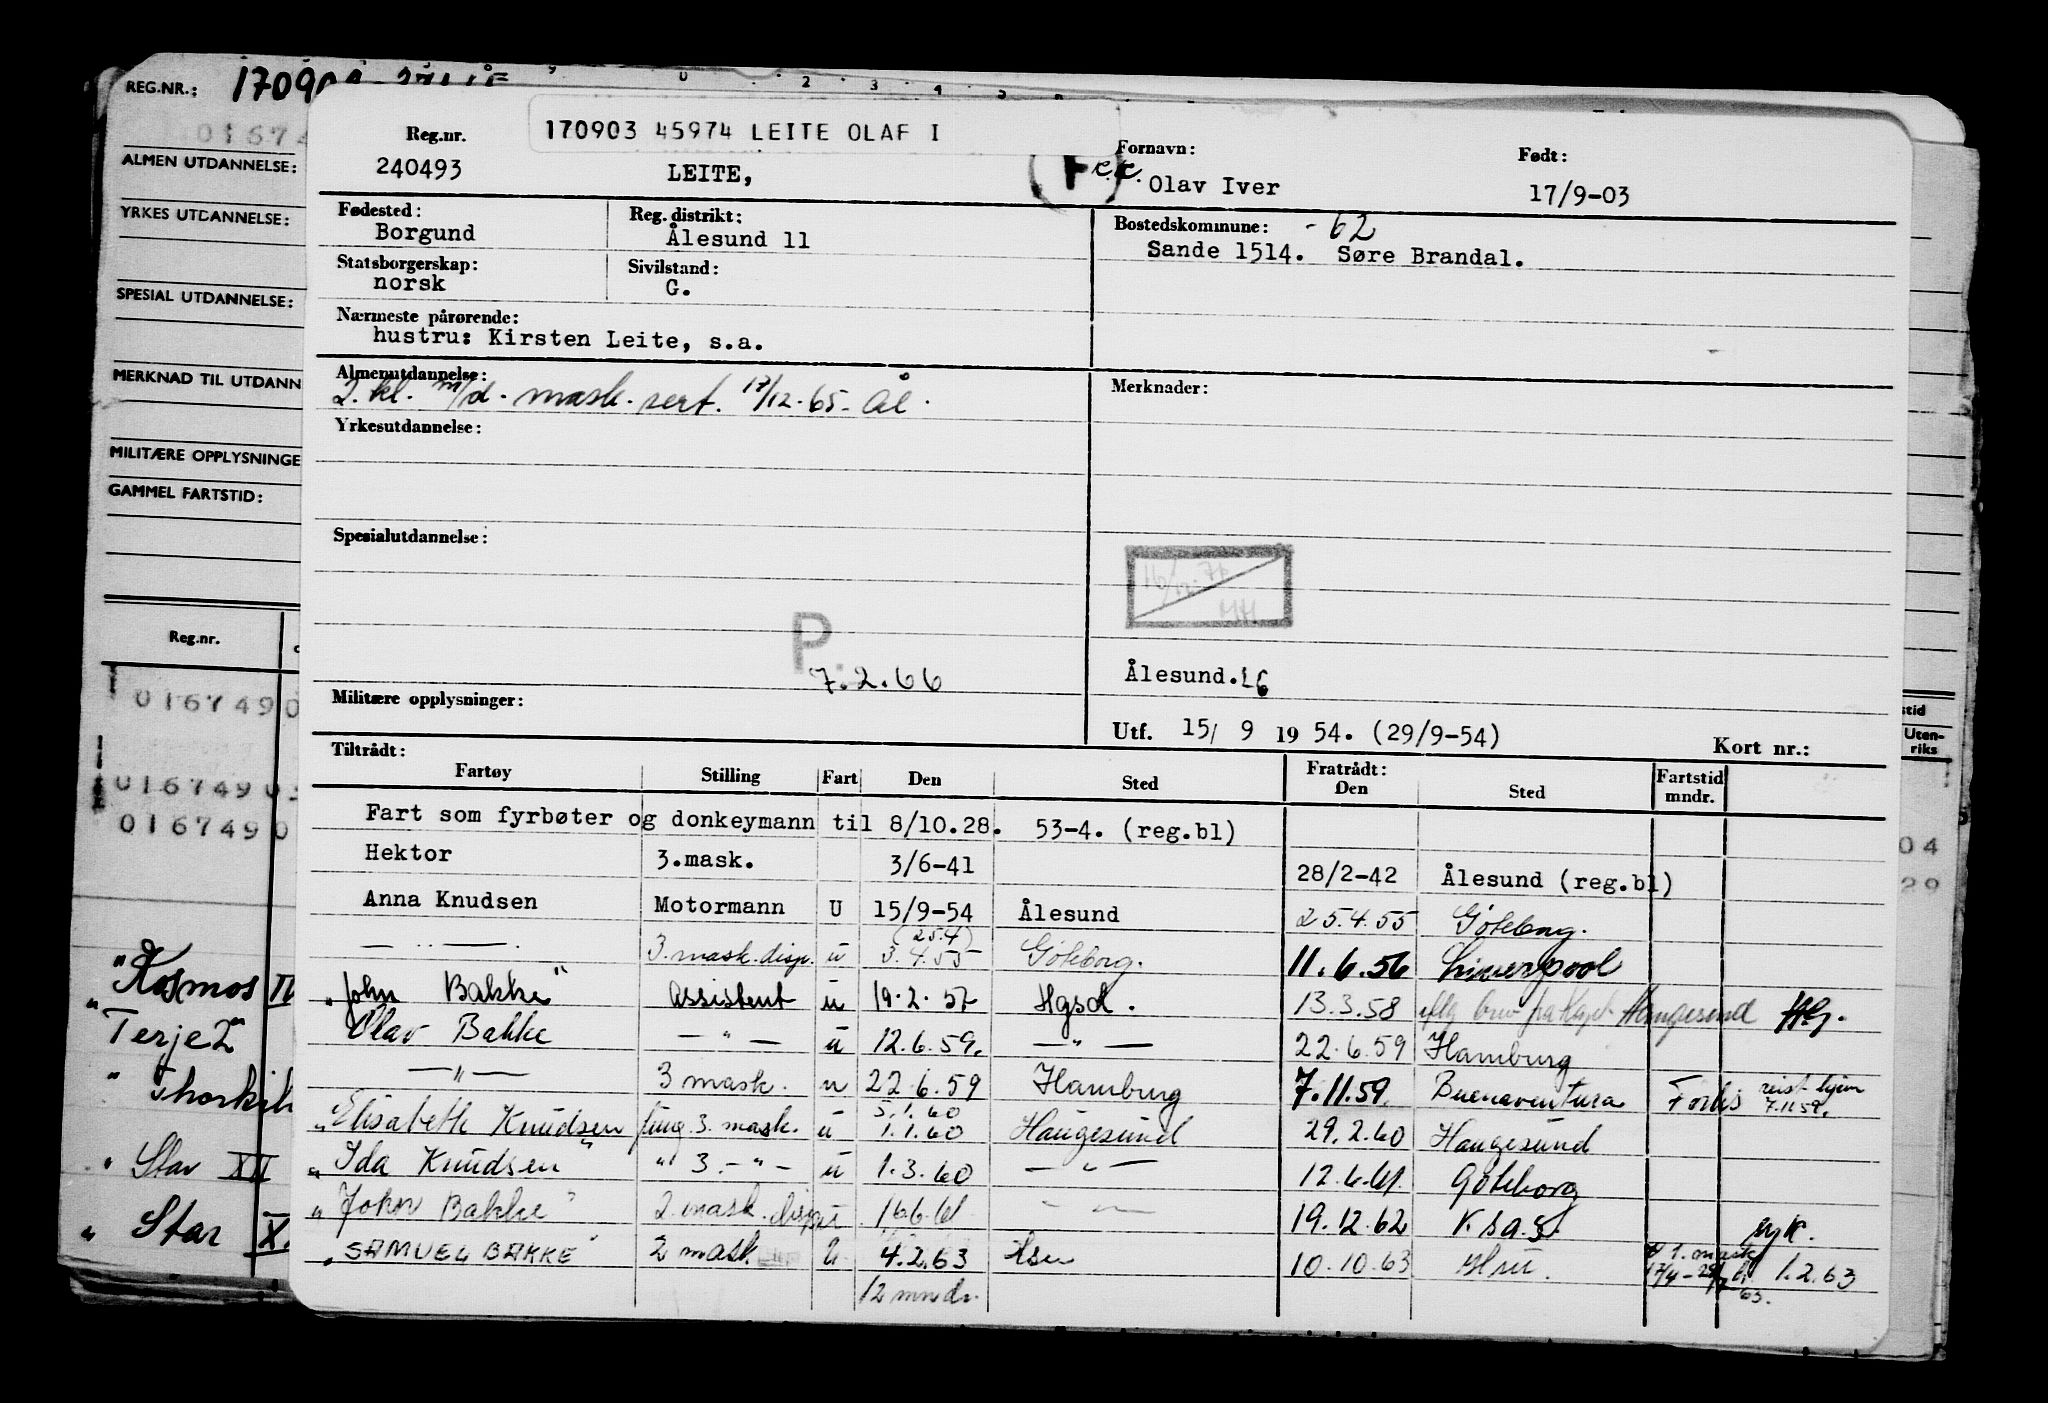 REG.NR.: 17090
01674
ALMEN UTDANNELSE:
YRKES UTDANNELSE:
SPESIAL UTDANNELSE:
MERKNAD TIL UTDANN
MILITÆRE OPPLYSNINGE
GAMMEL FARTSTID:
Reg.nr.
0167490
0167490
0167490
"Kosmos IV
"Terje 2"
"Thorkil
"Star XII
"Star X
170903 45974 LEITE OLAF I
Reg.nr. Fornavn: Født:
240493 LEITE, Olav Iver 17/9-03
Fødested: Reg. distrikt: Bostedskommune: -62
Borgund Ålesund 11 Sande 1514. Søre Brandal.
Statsborgerskap: Sivilstand:
norsk G.
Nærmeste pårørende:
hustru: Kirsten Leite, s.a.
Almenutdannelse: Merknader:
2. kl. m/d. mask. sert. 17/12-65- Ål.
Yrkesutdannelse:
Spesialutdannelse:
P.
7.2.66
Ålesund.
Militære opplysninger:
Utf. 15/ 9 19 54. (29/9-54) Kort nr.:
Tiltrådt: Fratrådt:
Fartøy Stilling Fart Den Sted Den Sted Fartstid mndr.
Fart som fyrbøter og donkeymann til 8/10.28. 53-4. (reg.bl)
Hektor 3.mask. 3/6-41 28/2-42 Ålesund (reg.bl)
Anna Knudsen Motormann U 15/9-54 Ålesund 25.4.55 Göteborg.
— " — 3. mask. disp. u (25.4) 3.4.55 Göteborg. 11.6.56 Liverpool
"John Bakke" Assistent u 19.2.57 Hgsd. 13.3.58 iflg brev fra Haugesund HG.
Olav Bakke — " — u 12.6.59. — " — 22.6.59 Hamburg
— " — 3 mask. u 22.6.59 Hamburg 7.11.59. Buenaventura reist hjem 7.11.59.
"Elisabeth Knudsen fung. 3. mask. u 5.1.60 1.1.60 Haugesund 29.2.60 Haugesund
"Ida Knudsen" " 3. - " - u 1.3.60 — " — 12.6.61. Göteborg
"John Bakke" 2. mask. disp u 16.6.61 — " — 19.12.62 syk.
"SAMUEL BAKKE" 2 mask. u 4.2.63 10.10.63 1. mask 1.2.63
12 mndr.
stid
Uten-
riks
04
29